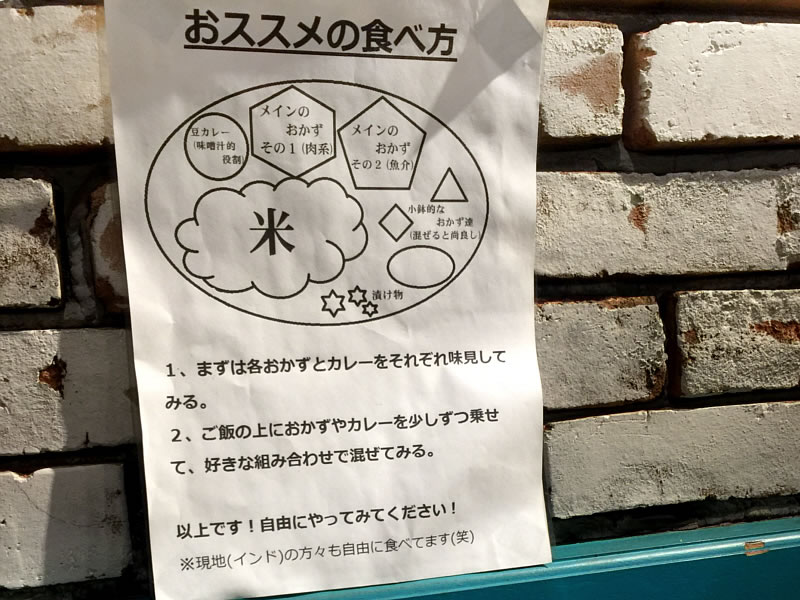 おススメの食べ方
豆カレー
(味噌汁的
役割)
メインの
おかず
その1(肉系)
メインの
おかず
その2(魚介)
米
小鉢的な
おかず達
(混ぜると尚良し)
漬け物
1、まずは各おかずとカレーをそれぞれ味見して
みる。
2、ご飯の上におかずやカレーを少しずつ乗せ
て、好きな組み合わせで混ぜてみる。
以上です！自由にやってみてください！
※現地(インド)の方々も自由に食べてます(笑)